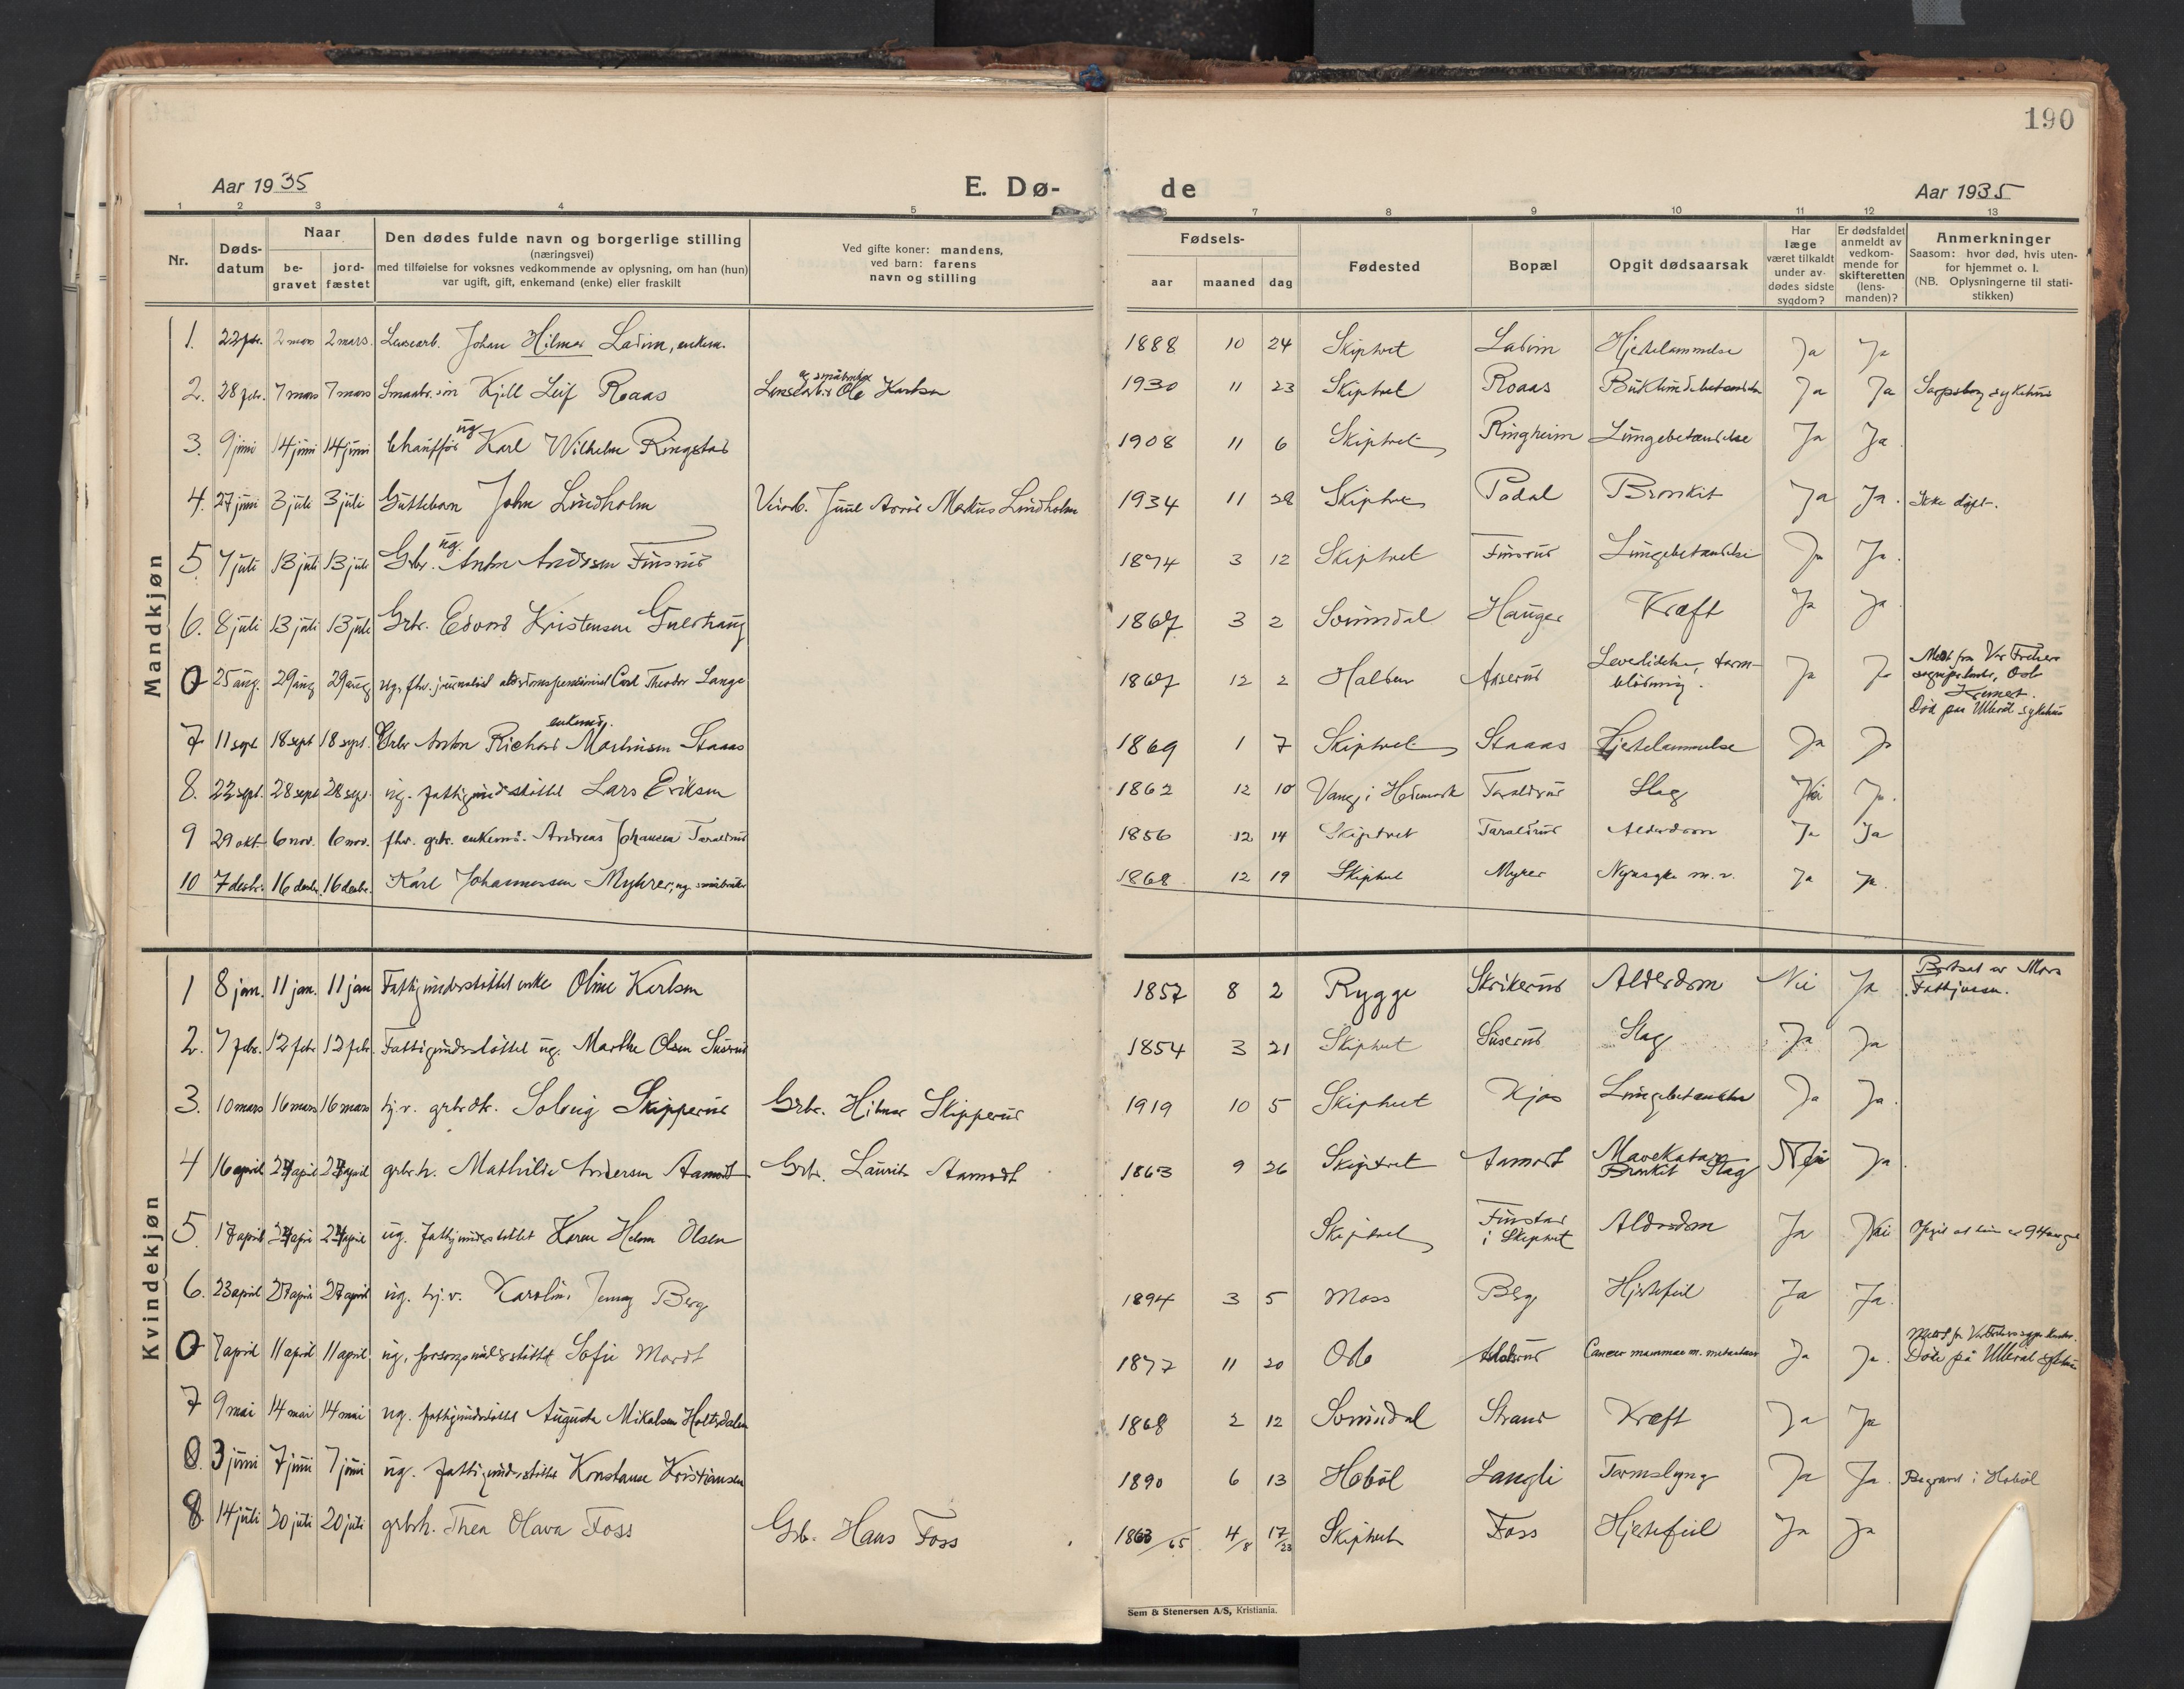 190
Aar 1935
E. Dø-
de
Aar 1935
1 2 3 4 5 6 7 8 9 10 11 12 13
Nr.
Døds-
datum
Naar
be-
gravet
jord-
fæstet
Den dødes fulde navn og borgerlige stilling
(næringsvei)
med tilføielse for voksnes vedkommende av oplysning, om han (hun)
var ugift, gift, enkemand (enke) eller fraskilt
Ved gifte koner: mandens,
ved barn: farens
navn og stilling
Fødsels-
aar maaned dag
Fødested
Bopæl
Opgit dødsaarsak
Har
læge
været tilkaldt
under av-
dødes sidste
sygdom?
Er dødsfaldet
anmeldt av
vedkom-
mende for
skifteretten
(lens-
manden)?
Anmerkninger
Saasom: hvor død, hvis uten-
for hjemmet o. l.
(NB. Oplysningerne til stati-
stikken)
Mandkjøn
1. 22 febr. 2 mars 2 mars. Lensearb. Johan Hilmar Ladim, enkem. 1888 10 24 Skiptvet Ladim Hjertelammelse Ja Ja
2. 28 febr. 7 mars 7 mars Smaabr. sön Kjell Leif Roaas Lensearb. og småbruker Ole Karlsen 1930 11 23 Skiptvet Roaas Bukhindebetændelse Ja Ja Sarpsborg sykehus
3. 9 juni 14 juni 14 juni Chauffør ug. Karl Wilhelm Ringstad 1908 11 6 Skiptvet Ringheim Lungebetændelse Ja Ja
4. 27 juni 3 juli 3 juli Guttebarn John Lindholm Veiarb. Juul Arvid Markus Lindholm 1934 11 28 Skiptvet Podal Bronkit Ja Ja. Ikke døpt.
5. 7 juli 13 juli 13 juli Grbr. ug. Anton Andersen Finsrud 1874 3 12 Skiptvet Finsrud Lungebetændelse Ja Ja.
6. 8 juli 13 juli 13 juli Grbr. Edvard Kristensen Gulerhaug 1867 3 2 Spinndal Hauger Kræft Ja Ja
0 25 aug. 29 aug 29 aug ug. fhv. journalist alderdomspensionist Carl Theodor Lange 1867 12 2 Halden Aaserud Leverlidelse, tarm-
blödning. Ja Ja Meldt fra Vår Frelsers
sogneprest, Oslo
Kremert.
Död på Ullevål sykehus
7 11 sept 18 sept 18 sept. Grbr Anton Richard Martinsen Staaas enkemd. 1869 1 7 Skiptvet Staaas Hjertelammelse Ja Ja
8. 22 sept. 28 sept 28 sept. ug. fattigunderstöttet Lars Eriksen 1862 12 10 Vang i Hedmark Taraldrud Slag Nei Ja.
9 29 okt. 6 nov. 6 nov. fhv. grbr. enkemd. Andreas Johansen Taraldrud 1856 12 14 Skiptvet Taraldrud Alderdom Ja Ja
10 7 desbr. 16 desbr. 16 desbr. Karl Johannessen Myhrer, ug småbruker 1868 12 19 Skiptvet Myrer Nyresyke m. v. Ja Ja.
Kvindekjøn
1 8 jan. 11 jan. 11 jan Fattigunderstöttet enke Oline Karlsen 1857 8 2 Rygge Skrikerud Alderdom Nei Ja Bortsat av Moss
Fattigvesen.
2. 7 febr. 12 febr 12 febr. Fattigunderstöttet ug. Marthe Olsen Suserud 1854 3 21 Skiptvet Suserud Slag Ja Ja
3. 10 mars 16 mars 16 mars hj.v. grbrdtr. Solveig Skipperud Grbr. Hilmar Skipperud 1919 10 5 Skiptvet Kjos Lungebetændelse Ja Ja.
4 16 april 27 april 27 april grbr.h. Mathilde Andersen Aamodt Grbr. Laurits Aamodt 1863 9 26 Skiptvet Aamodt Mavekatarr
Bronkit Slag Nei Ja.
5. 17 april 27 april 27 april ug. fattigunderstöttet Karen Helene Olsen Skiptvet Finstad
i Skiptvet Alderdom Ja Nei Opgit at hun er 94 aar gml
6. 23 april 27 april 27 april ug. hj.v. Karoline Jenny Berg 1894 3 5 Moss Berg Hjertefeil Ja Ja.
0 7 april 11 april 11 april ug. forsorgsunderstöttet Sofie Mordt 1877 11 20 Oslo Cancer mammae m. metastaser Ja Ja. Död på Ullevål sykehus
7 9 mai 14 mai 14 mai ug. fattigunderstöttet Augusta Mikalsen Holtsdalen 1868 2 12 Spinndal Strand Kræft Ja Ja
0. 3 juni 7 juni 7 juni ug. fattigunderstöttet Konstanse Kristiansen 1890 6 13 Hobøl Langli Tarmslyng Ja Ja. Begravet i Hobøl
8. 14 juli 20 juli 20 juli grbr.h. Thea Olava Foss Grb. Hans Foss 1863/65 4/8 17/23 Skiptvet Foss Hjertefeil Ja Ja
Sem & Stenersen A/S, Kristiania.